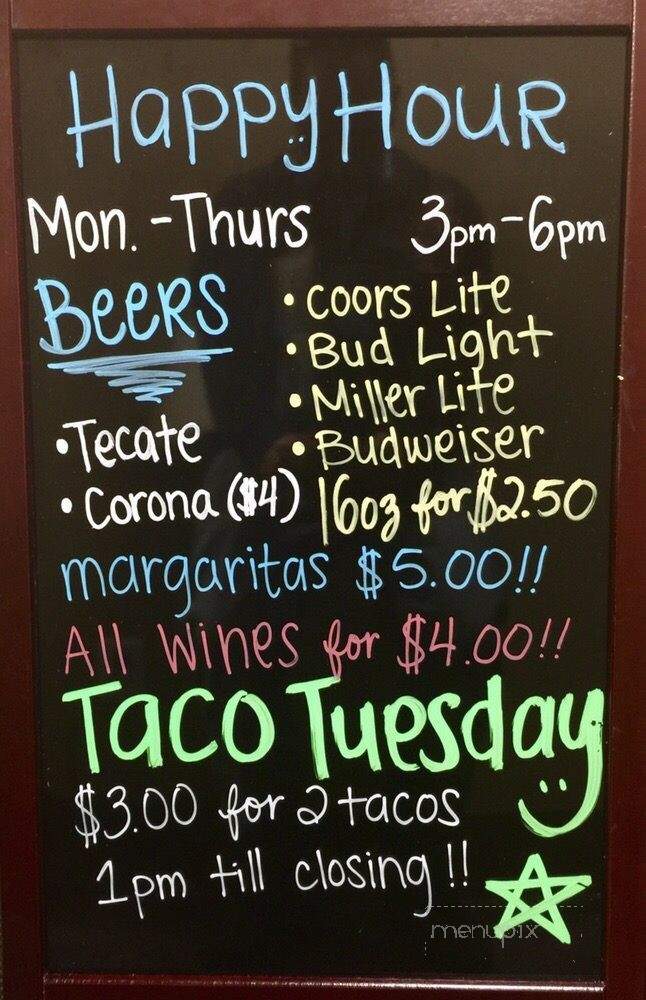 Happy Hour
Mon. - Thurs 3pm - 6pm
Beers
• Coors Lite
• Bud Light
• Miller Lite
• Tecate
• Budweiser
• Corona ($4)
16oz for $2.50
margaritas $5.00!!
All Wines for $4.00!!
Taco Tuesday
$3.00 for 2 tacos
1pm till closing!!
menupix